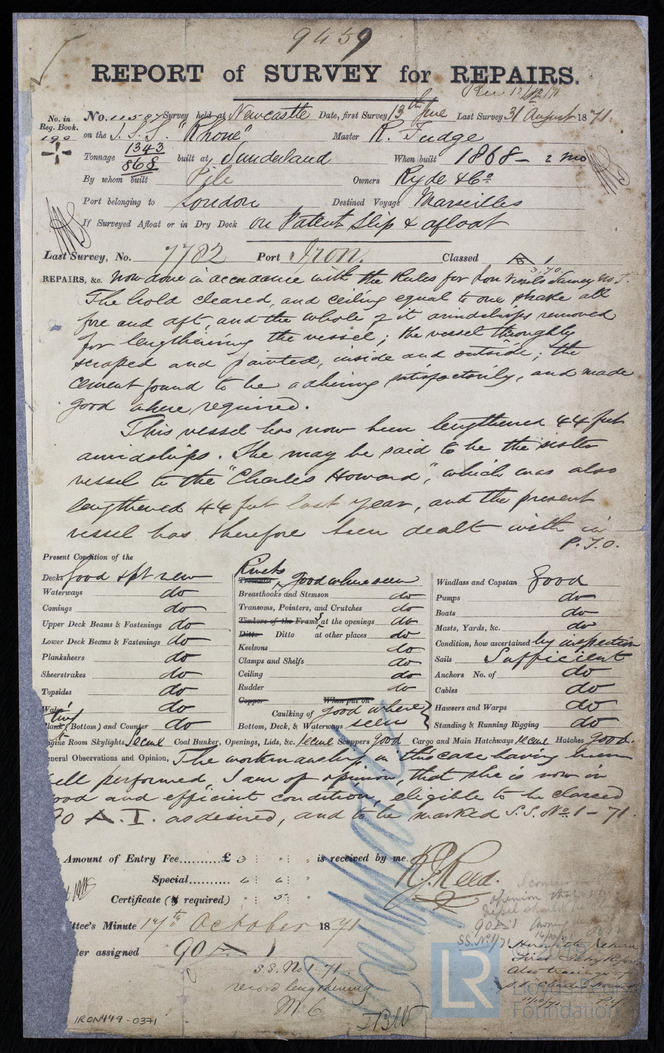 9459
REPORT of SURVEY for REPAIRS.
No. in Reg. Book. No. 11587 Survey held at Newcastle Date, first Survey 13th June Last Survey 31st August 1871.
190 on the I.S.S. "Rhone" Master R. Fudge
Tonnage 1343 868 built at Sunderland When built 1868 - 2 mo
By whom built Pile Owners Ryde & Co
Port belonging to London Destined Voyage Marseilles
If Surveyed Afloat or in Dry Dock on Patent Slip & afloat
Last Survey, No. 7782 Port Iron. Classed A 1
REPAIRS, &c. now done in accordance with the Rules for Iron Vessels Survey No 1.
The hold cleared, and ceiling equal to one strake all
fore and aft, and the whole of it amidships removed
for lengthening the vessel; the vessel thoroughly
scraped and painted, inside and outside; the
cement found to be adhering satisfactorily, and made
good where required.
This vessel has now been lengthened 44 feet
amidships. She may be said to be the sister
vessel to the "Charles Howard", which was also
lengthened 44 feet last year, and the present
vessel has therefore been dealt with in
P.T.O.
Present Condition of the
Decks Good & pt new
Waterways do
Comings do
Upper Deck Beams & Fastenings do
Lower Deck Beams & Fastenings do
Planksheers do
Sheerstrakes do
Topsides do
Wales do
Plank (Bottom) and Counter do
Rivets Treenails good where seen
Breasthooks and Stemson do
Transoms, Pointers, and Crutches do
Timbers of the Frame at the openings do
Ditto Ditto at other places do
Keelsons do
Clamps and Shelfs do
Ceiling do
Rudder do
Copper When put on
Caulking of Bottom, Deck, & Waterways good where seen
Windlass and Capstan Good
Pumps do
Boats do
Masts, Yards, &c. do
Condition, how ascertained by inspection
Sails Sufficient
Anchors No. of do
Cables do
Hawsers and Warps do
Standing & Running Rigging do
Engine Room Skylights Secure Coal Bunker, Openings, Lids, &c. Secure Scuppers Good Cargo and Main Hatchways Secure Hatches Good.
General Observations and Opinion, The workmanship in this case having been
well performed I am of opinion, that she is now in
good and efficient condition, eligible to be classed
90 A.1. as desired, and to be marked S.S. No. 1-71.
Amount of Entry Fee.........£ 3 is received by me
R. J. Reed.
Special......
Certificate (if required)
Committee's Minute 17th October 1871
Character assigned 90 A 1
S.S. No 1-71.
record lengthening
M.C.
IRON449-0371
LR
Lloyd's Register
Foundation